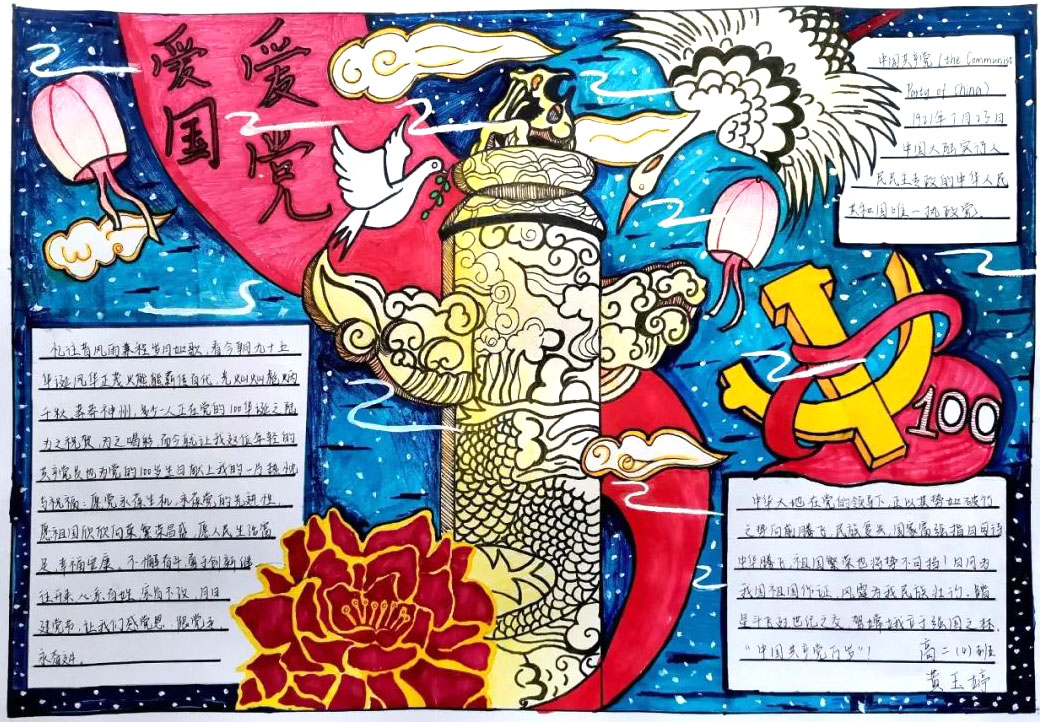 爱国
爱党
中国共产党(the Communist
Party of China)
1921年7月23日
中国大陆实行人
民民主专政的中华人民
共和国唯一执政党。
忆往昔风雨兼程岁月如歌,看今朝九十五
华诞风华正茂火
千秋 神州,每个人正在党的100华诞之
为之祝贺,为之喝彩,而今就让我这位年轻的
共产党员也为党的100岁生日献上我的一片热忱
与祝福:愿党永葆生机,永葆党的先进性
愿祖国欣欣向荣 繁荣昌盛 愿人民生活富
足 幸福安康。不懈奋斗 勇于创新 继
往开来 心系百姓 寒暑不改 月日
建党节,让我们感党恩,跟党走
永奋斗。
100
中华大地在党的领导下,正以其势如破竹
之势向前腾飞,民族复兴,国家富强指日可待
中华腾飞,祖国繁荣也将势不可挡!日月为
我国祖国作证,风雪为我民族壮行,踏
星斗飞越世纪之交,驾嫦娥 于强国之林。
“中国共产党万岁”! 高二(4)班
黄玉婷